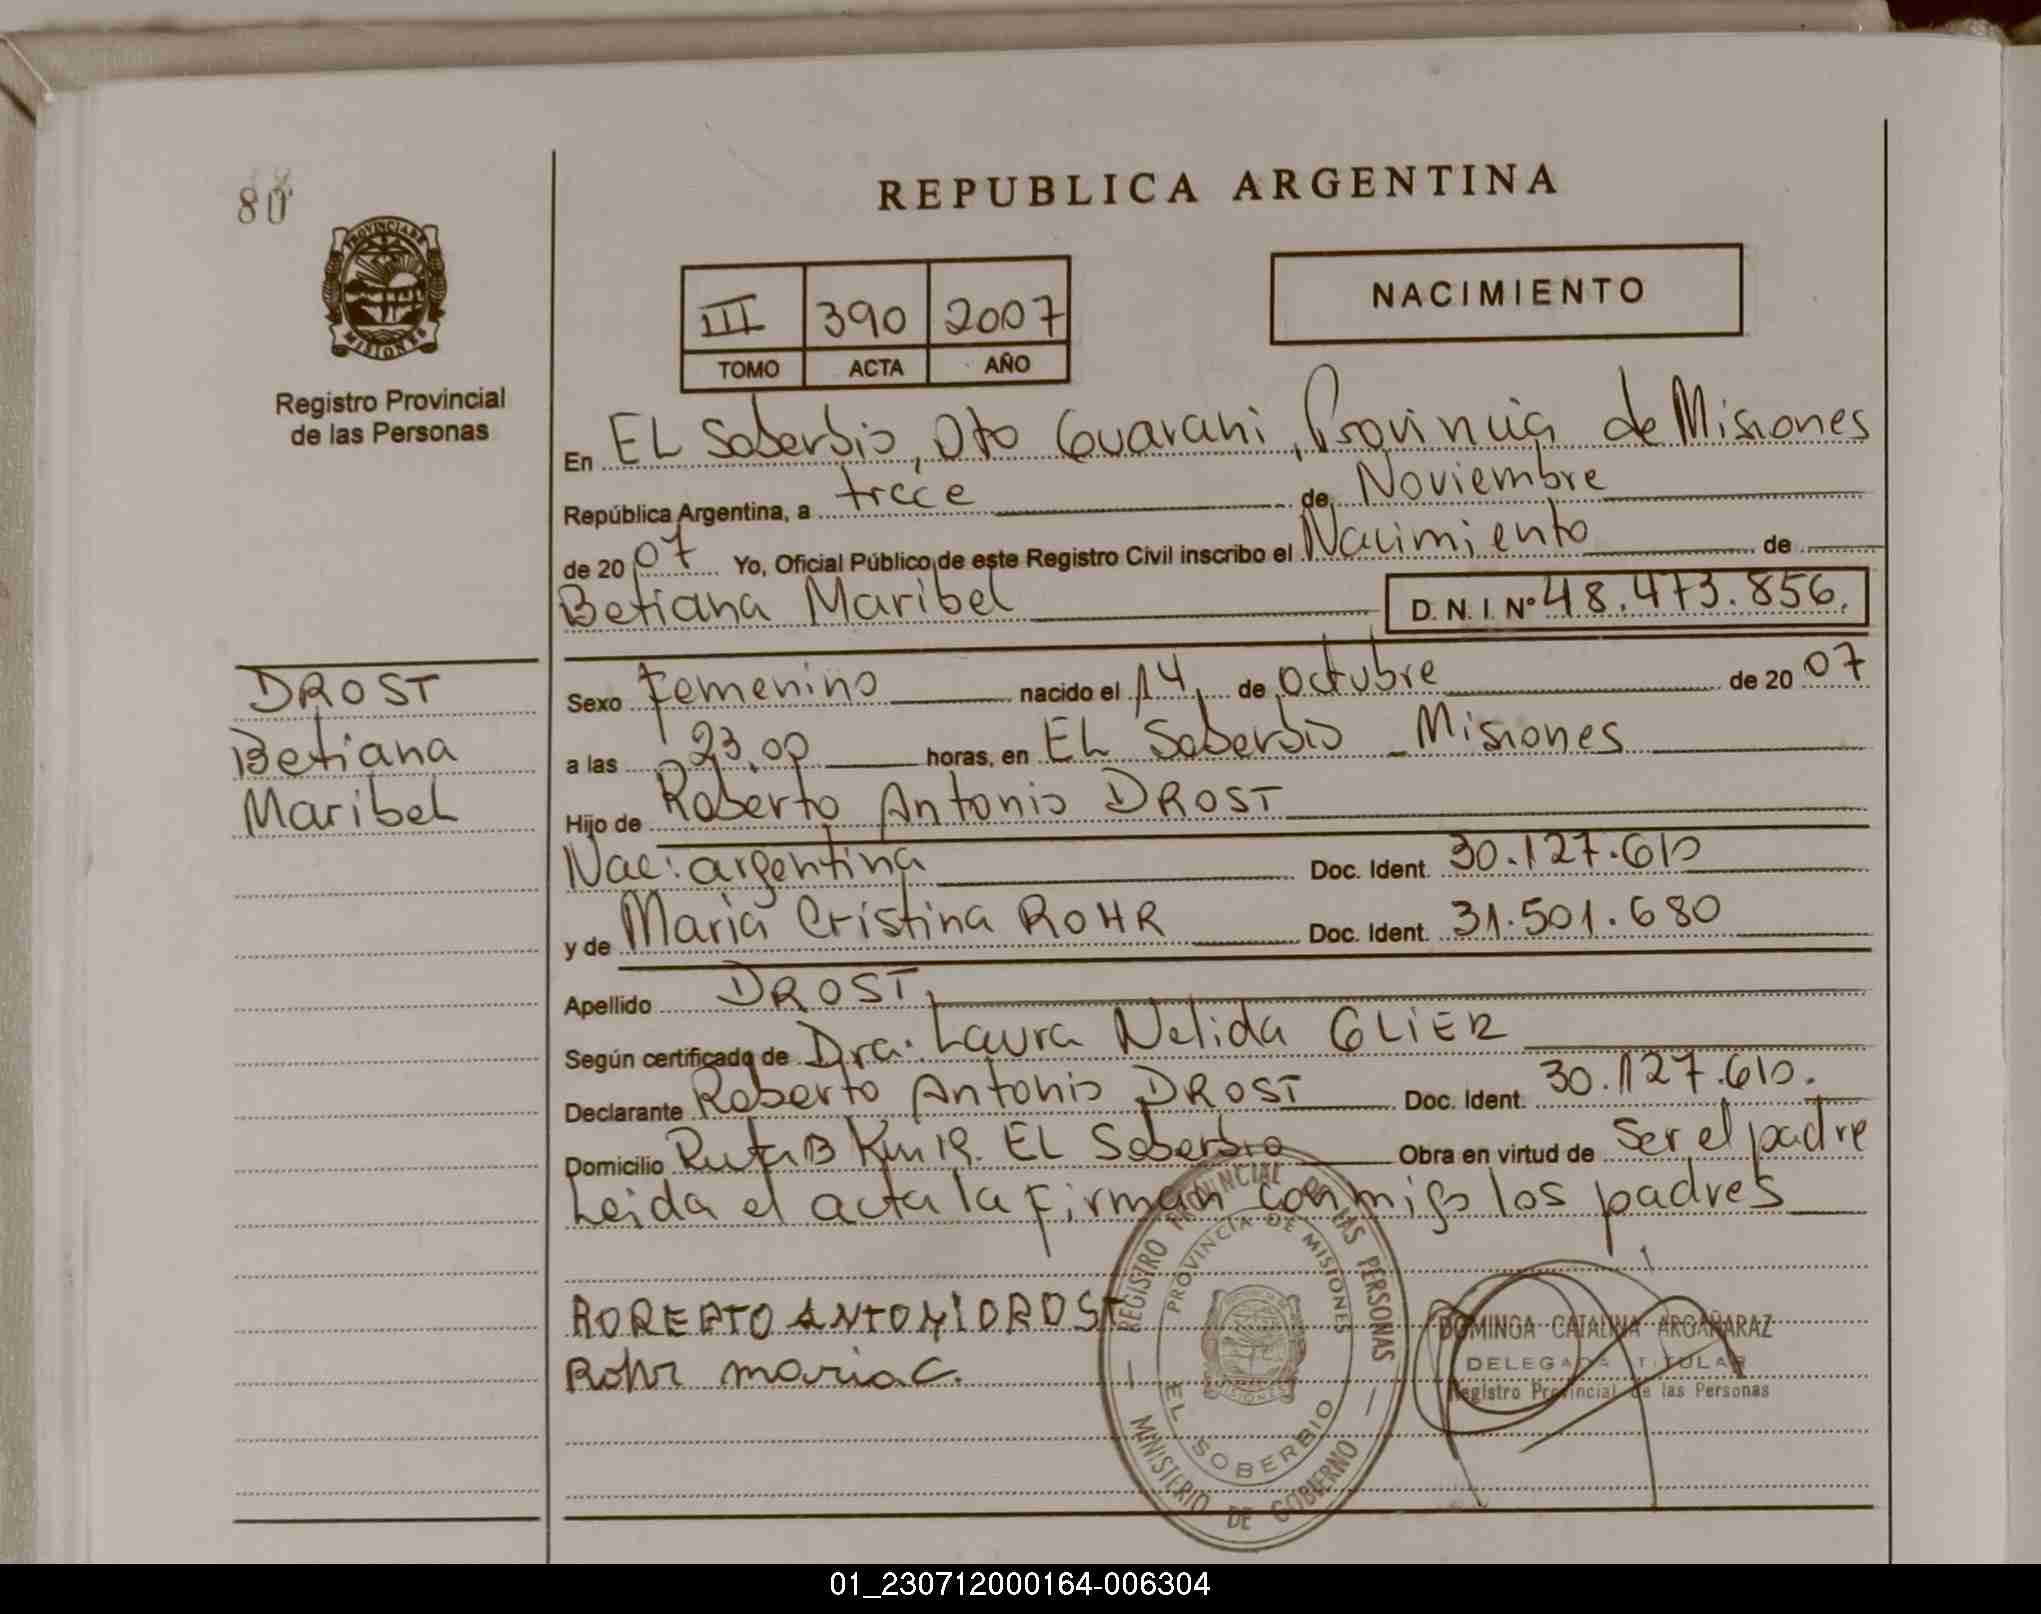 80
PROVINCIA DE
MISIONES
Registro Provincial
de las Personas
REPUBLICA ARGENTINA
III 390 2007
TOMO ACTA AÑO
NACIMIENTO
En EL Soberbio, Dto Guarani, Provincia de Misiones
República Argentina, a trece de Noviembre
de 2007 Yo, Oficial Público de este Registro Civil inscribo el Nacimiento de
Betiana Maribel D. N. I. Nº 48.473.856.
DROST
Betiana
Maribel
Sexo Femenino nacido el 14 de octubre de 2007
a las 23,00 horas, en EL Soberbio - Misiones
Hijo de Roberto Antonio DROST
Nac: argentina Doc. Ident. 30.127.610
y de Maria Cristina ROHR Doc. Ident. 31.501.680
Apellido DROST
Según certificado de Dra. Laura Nelida GLIER
Declarante Roberto Antonio DROST Doc. Ident. 30.127.610.
Domicilio Ruta 13 Km 12. EL Soberbio Obra en virtud de Ser el padre
Leida el acta la firman conmigo los padres
ROBERTO ANTONIO DROST
Rohr maria C.
REGISTRO PROVINCIAL DE LAS PERSONAS
PROVINCIA DE MISIONES
EL SOBERBIO
MINISTERIO DE GOBIERNO
DOMINGA CATALINA ARGAÑARAZ
DELEGADA TITULAR
Registro Provincial de las Personas
01_230712000164-006304